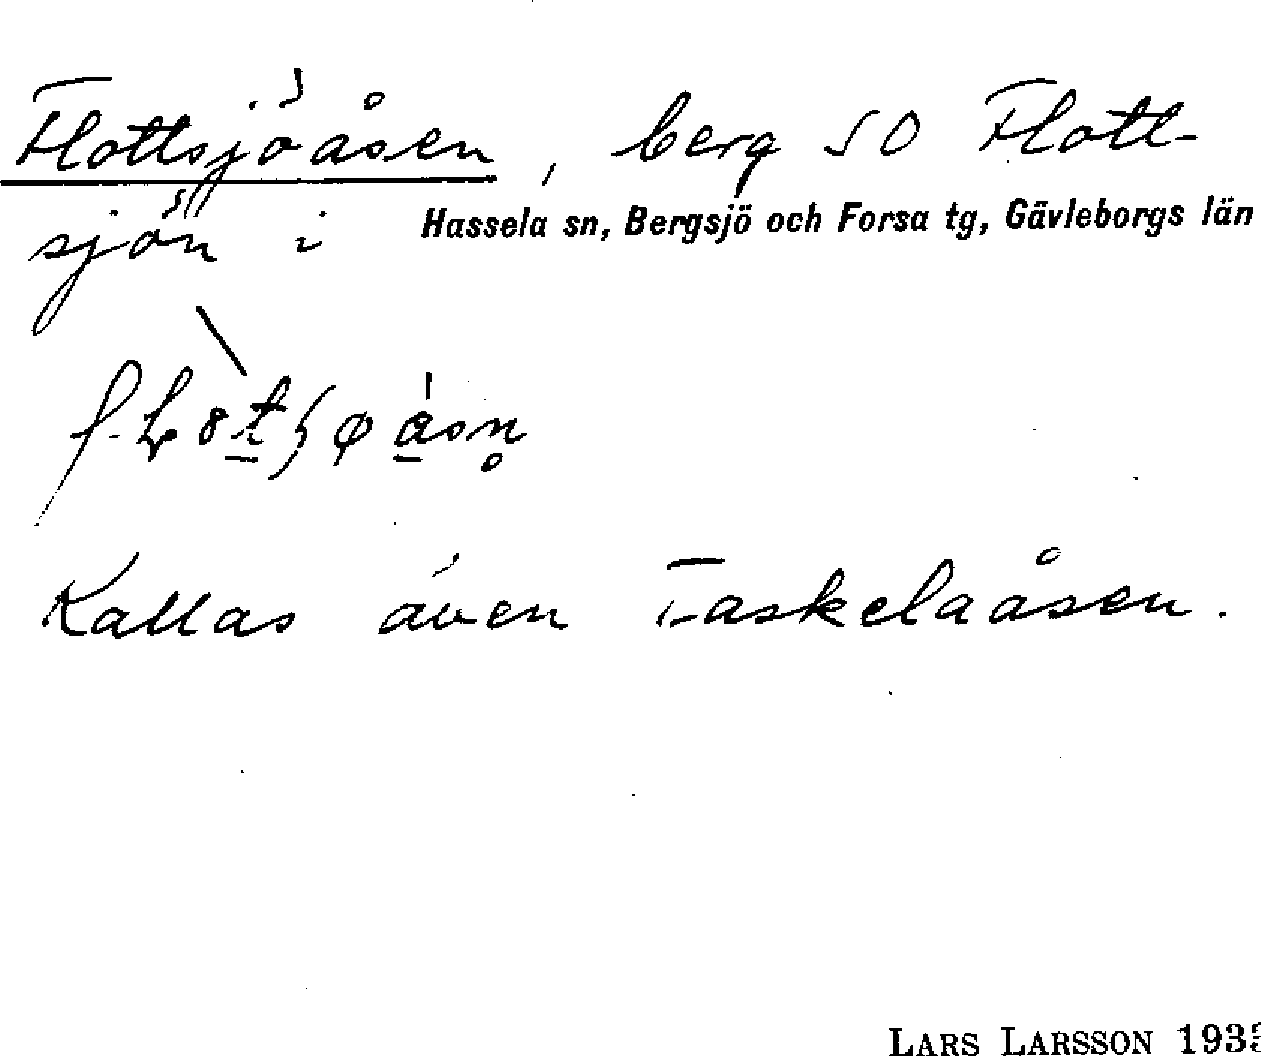 Flottsjöåsen, berg SO Flott-
sjön i Hassela sn, Bergsjö och Forsa tg, Gävleborgs län
Kallas även Faskelaåsen.
LARS LARSSON 193